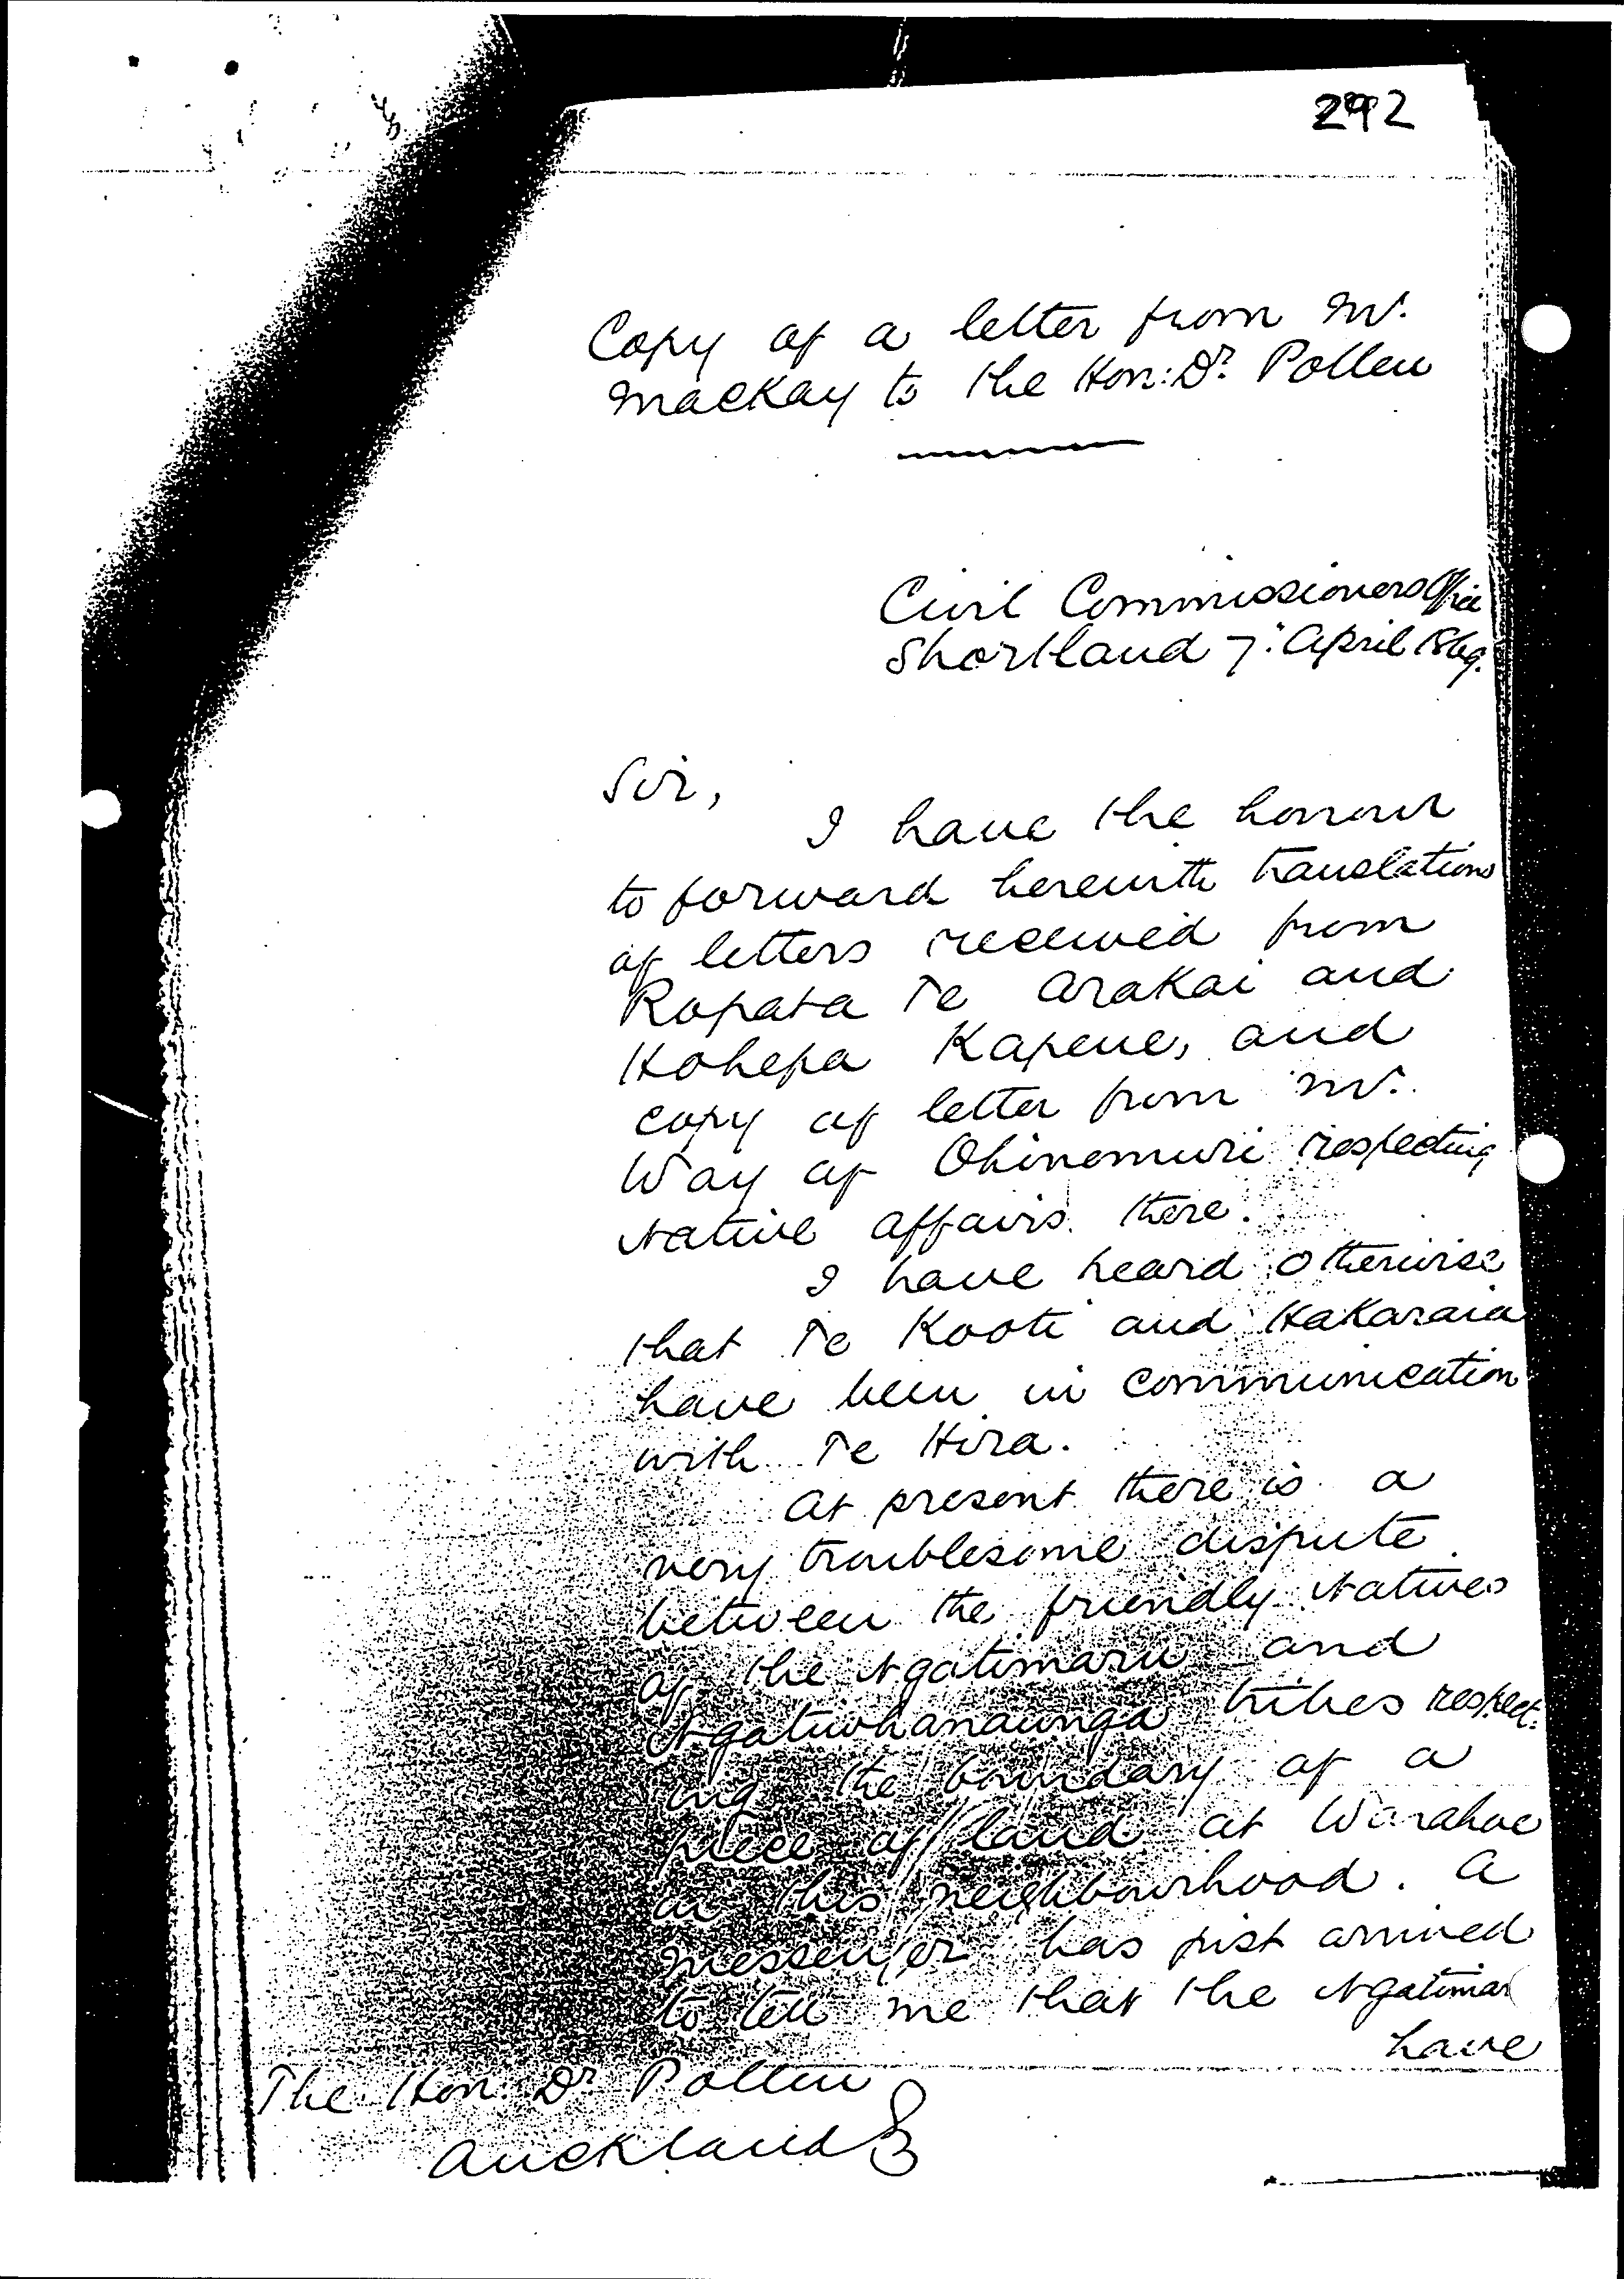 292
Copy of a letter from Mr.
Mackay to the Hon: Dr. Pollen
Civil Commissioners Office
Shortland 7: April 1869.
Sir,
I have the honour
to forward herewith translations
of letters received from
Ropata Te Arakai and
Hohepa Kapene, and
copy of letter from Mr.
Way of Ohinemuri respecting
Native affairs there.
I have heard otherwise
that Te Kooti and Hakaraia
have been in communication
with Te Hira.
At present there is a
very troublesome dispute
between the friendly Natives
of the Ngatimaru and
Ngatiwhanaunga tribes respect:
ing the boundary of a
piece of land at Warahoe
in this neighbourhood. A
messenger has just arrived
to tell me that the Ngatimar
have
The Hon: Dr. Pollen
Auckland